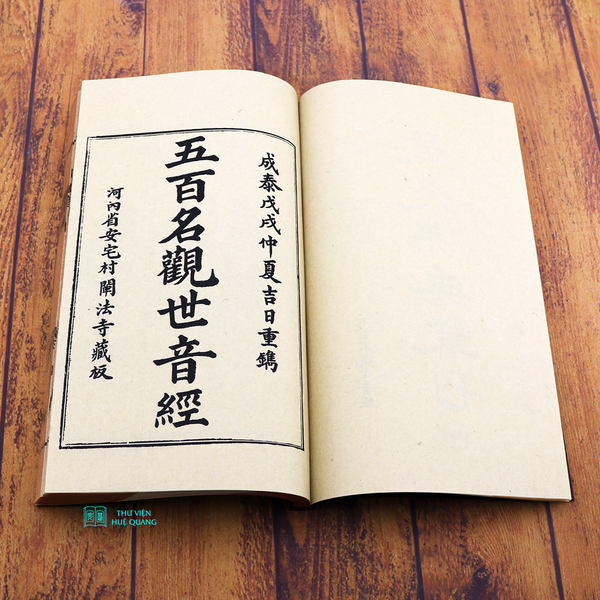 成泰戊戌仲夏吉日重鐫
五百名觀世音經
河內省安宅村闡法寺藏板
THƯ VIỆN
HUỆ QUANG